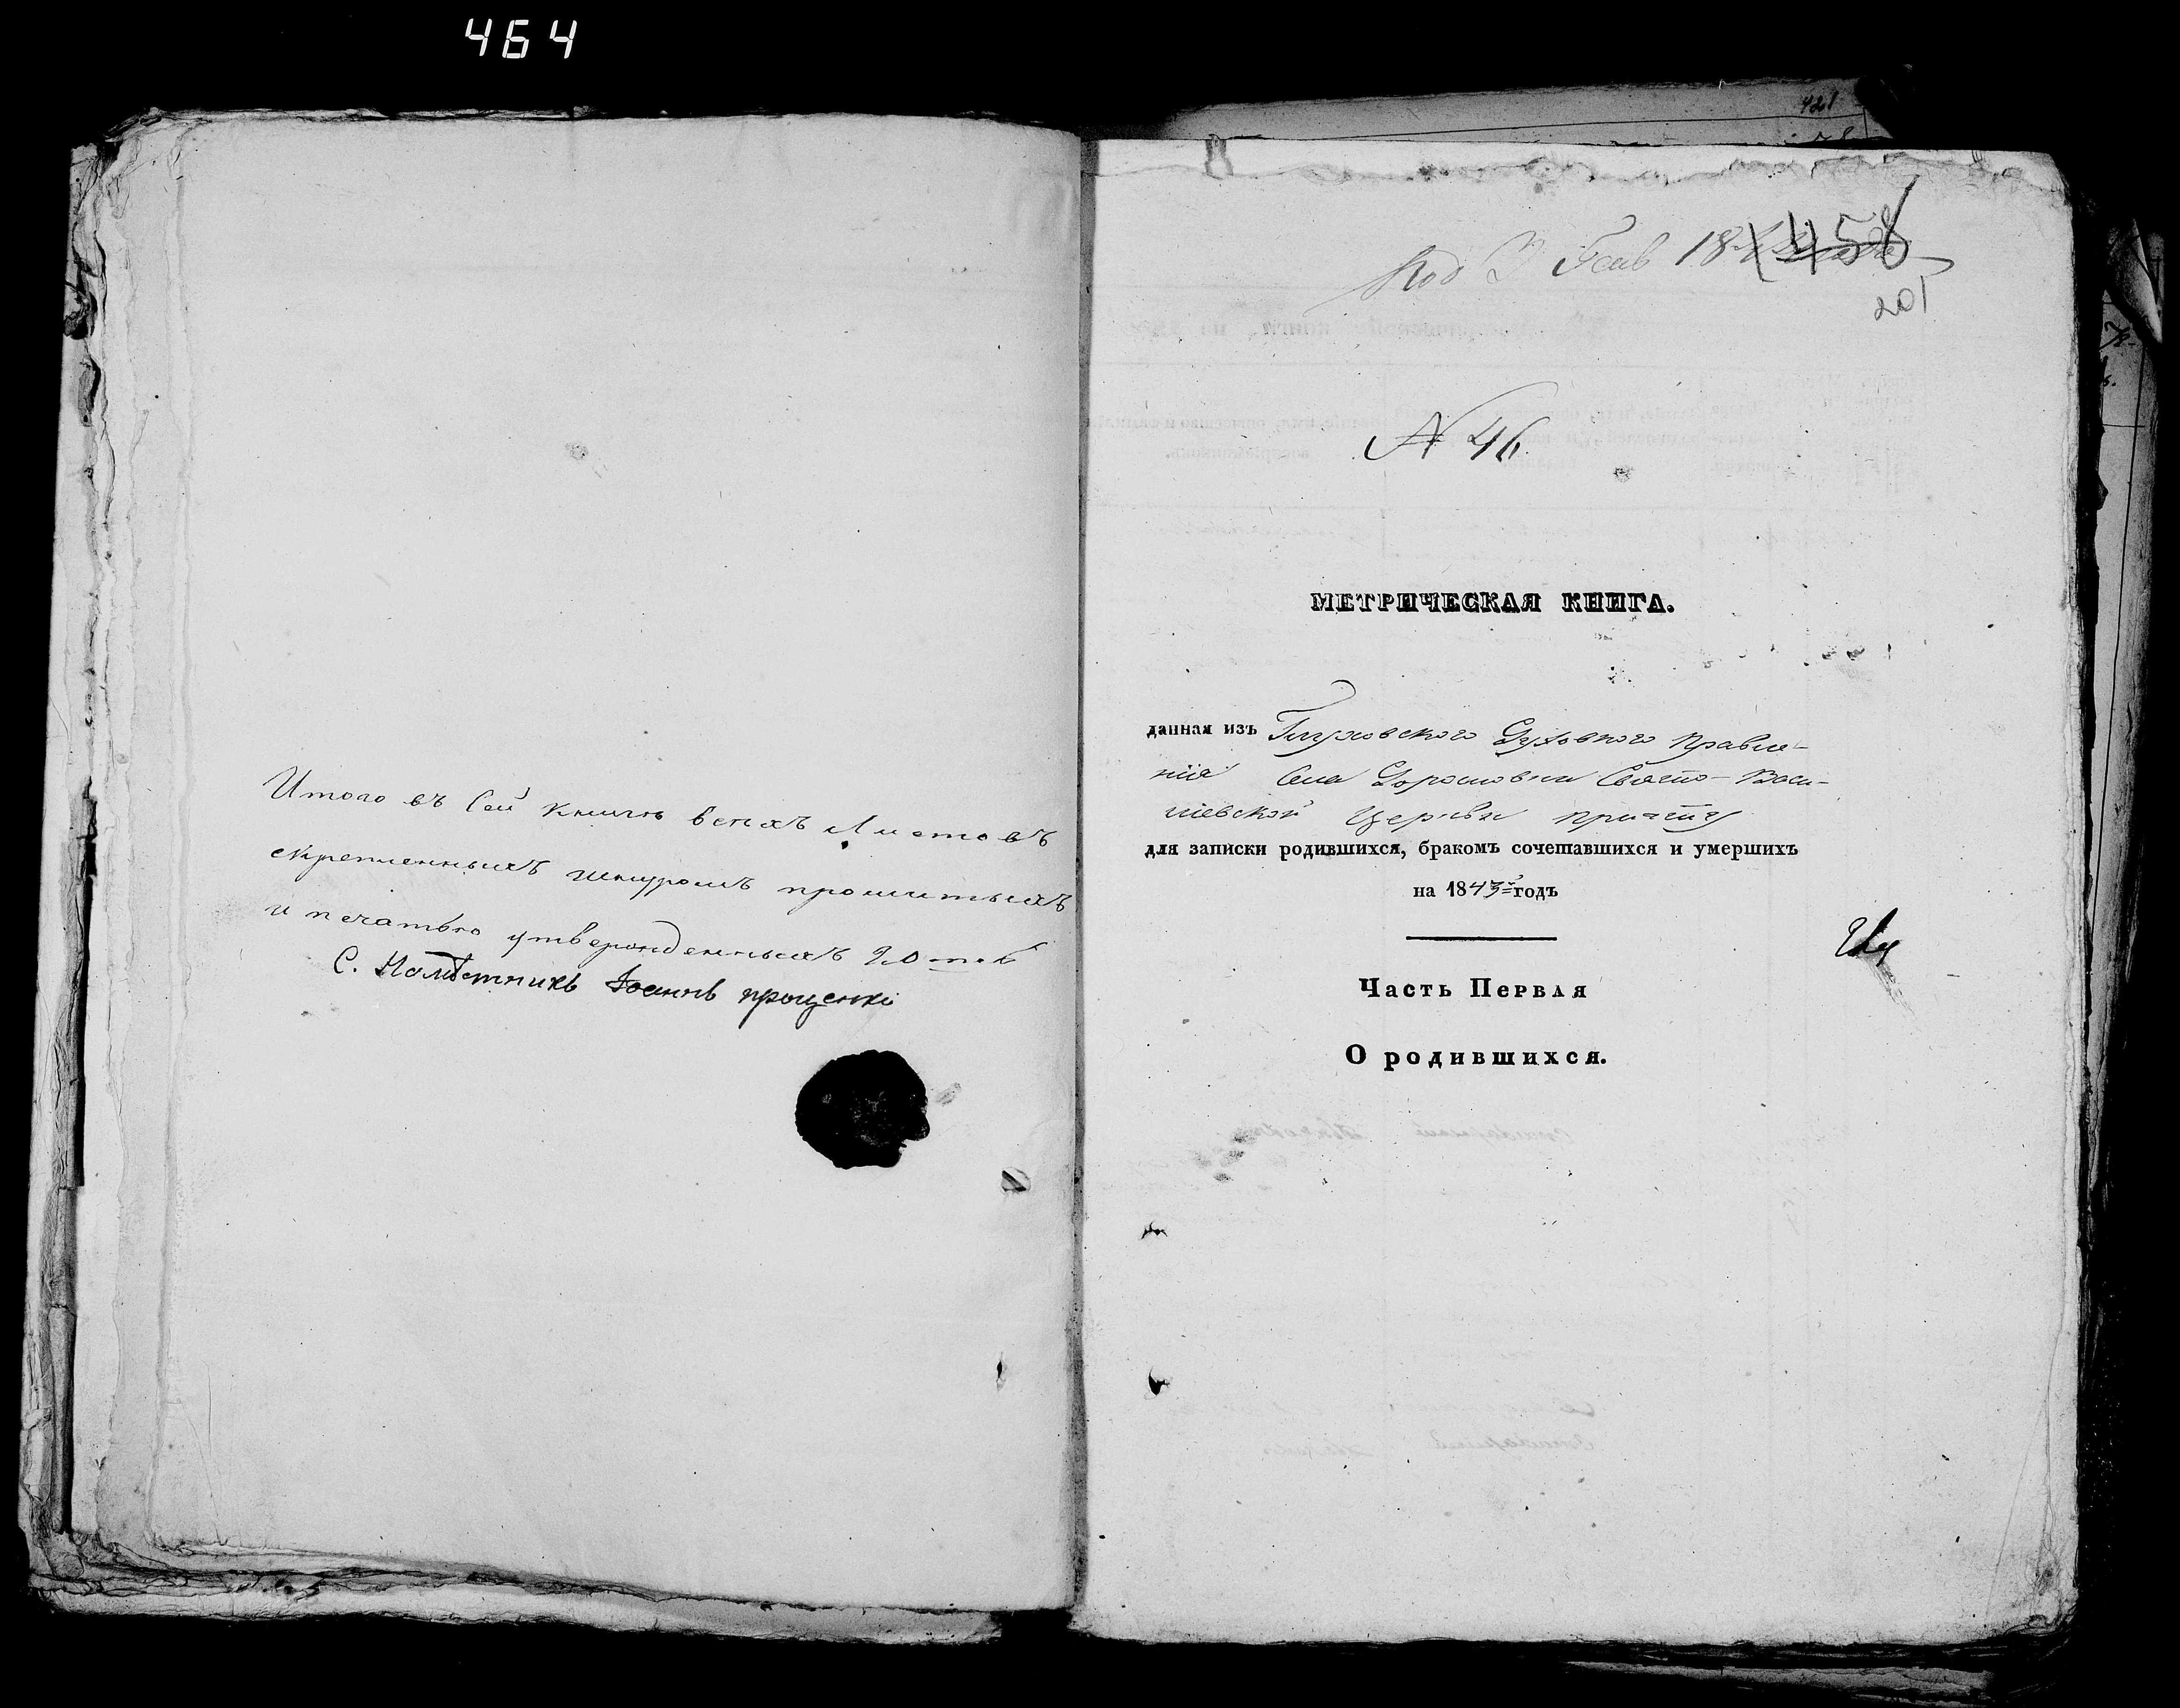 464
421
Итого въ Сей книгѣ всехъ Листовъ
скрепленныхъ шнуромъ прошитыхъ
и печатью утвержденныхъ 20-ть
С. Намѣстникъ Іоаннъ Проценко
458
201
N 46.
МЕТРИЧЕСКАЯ КНИГА.
данная изъ Глуховского Духовного Правле-
нія Села Дорошовки Свято- Васи-
лiевской Церкви причту
для записки родившихся, бракомъ сочетавшихся и умершихъ
на 1843 годъ
Часть Первая
О родившихся.